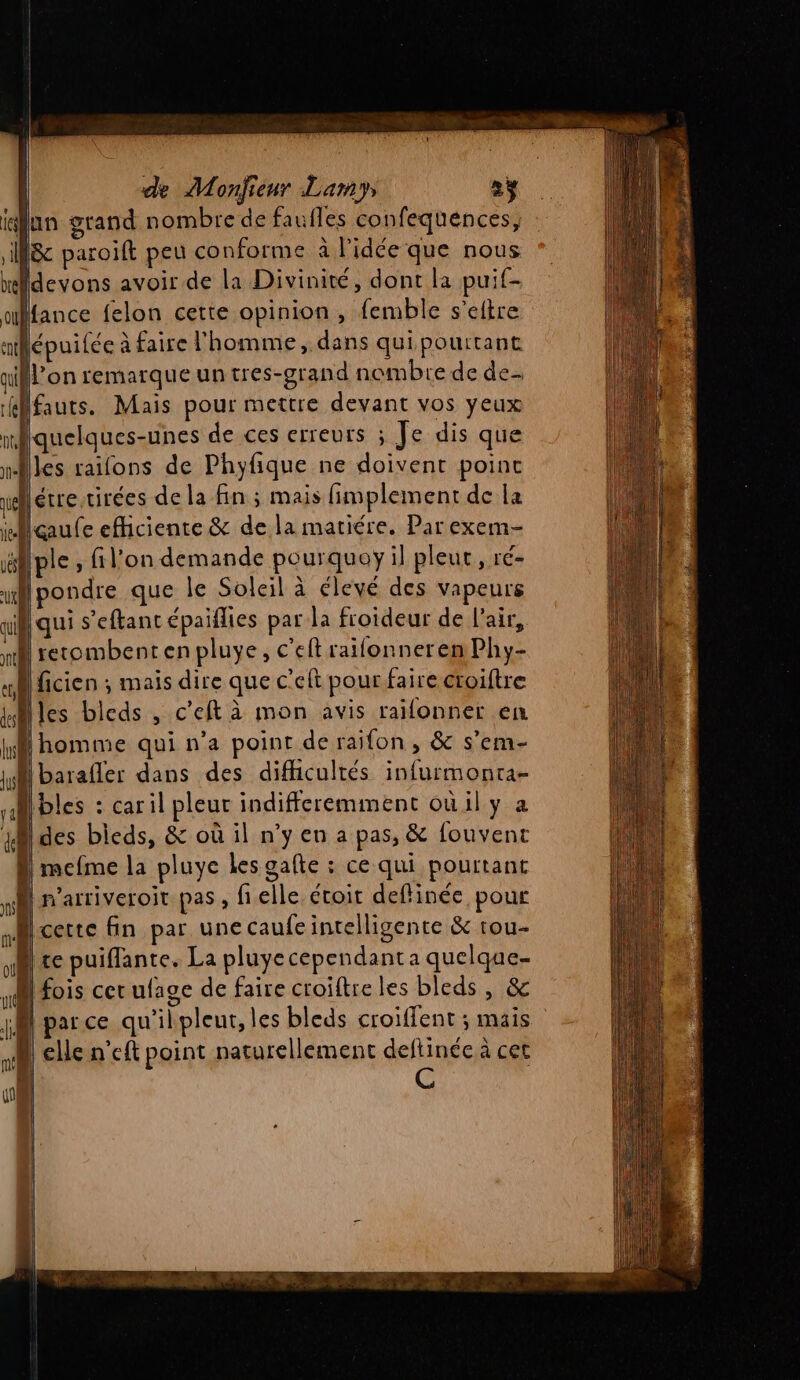 de Monſieur Lamy, 25
un grand nombre de fauſſes conſequences,
& paroiſt peu conforme à l'idée que nous
devons avoir de la Divinité, dont la puiſ-
ſance ſelon cette opinion, ſemble s'eſtre
épuiſée à faire l'homme, dans qui pourtant
l'on remarque un tres-grand nombre de de-
fauts. Mais pour mettre devant vos yeux
quelques-unes de ces erreurs ; Je dis que
les raiſons de Phyſique ne doivent point
étre tirées de la fin ; mais ſimplement de la
cauſe efficiente & de la matiére. Par exem-
ple, ſi l'on demande pourquoy il pleut, ré-
pondre que le Soleil à élevé des vapeurs
qui s'eſtant épaiſſies par la froideur de l'air,
retombent en pluye, c'eſt raiſonner en Phy-
ſicien ; mais dire que c'eſt pour faire croiſtre
les bleds, c'eſt à mon avis raiſonner en
homme qui n'a point de raiſon, & s'em-
baraſſer dans des difficultés inſurmonta-
bles : car il pleut indifferemment où il y a
des bleds, & où il n'y en a pas, & ſouvent
meſme la pluye les gaſte : ce qui pourtant
n'arriveroit pas, ſi elle étoit deſtinée pour
cette fin par une cauſe intelligente & tou-
te puiſſante. La pluye cependant a quelque-
fois cet uſage de faire croiſtre les bleds, &
parce qu'il pleut, les bleds croiſſent ; mais
elle n'eſt point naturellement deſtinée à cet
C